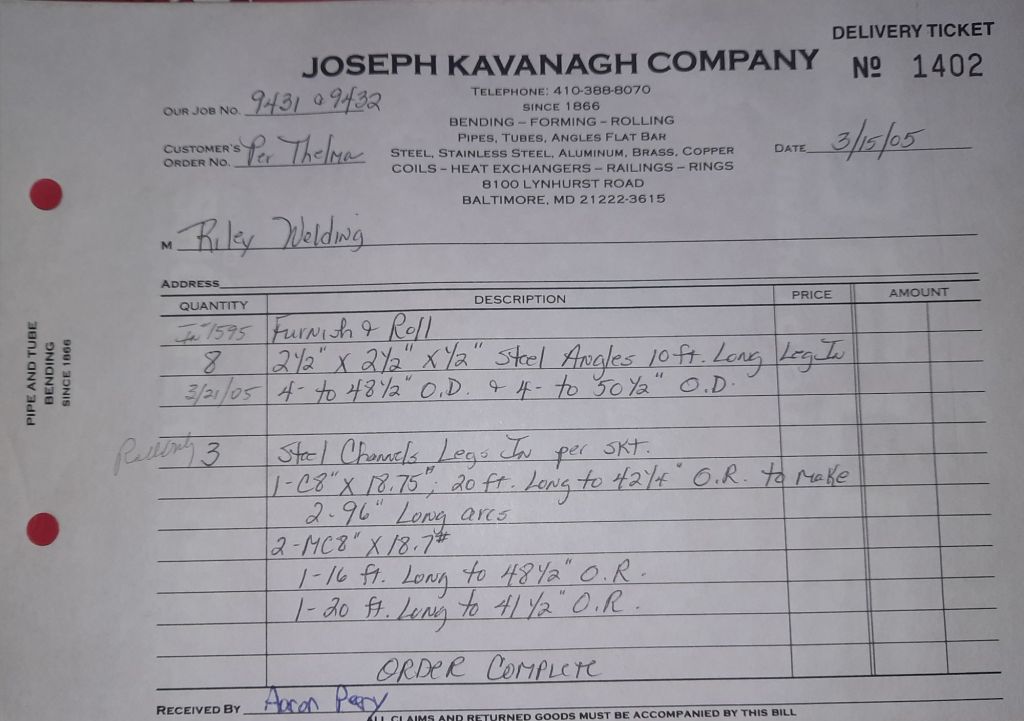 DELIVERY TICKET
JOSEPH KAVANAGH COMPANY
Nº 1402
TELEPHONE: 410-388-8070
SINCE 1866
BENDING – FORMING – ROLLING
PIPES, TUBES, ANGLES FLAT BAR
STEEL, STAINLESS STEEL, ALUMINUM, BRASS, COPPER
COILS – HEAT EXCHANGERS – RAILINGS – RINGS
8100 LYNHURST ROAD
BALTIMORE, MD 21222-3615
OUR JOB NO. 9431 & 9432
CUSTOMER'S ORDER NO. Per Thelma
DATE 3/15/05
M Riley Welding
ADDRESS
QUANTITY DESCRIPTION PRICE AMOUNT
In #1595 Furnish & Roll
8 2 1/2" X 2 1/2" X 1/2" Steel Angles 10 ft. Long Leg In
3/21/05 4- to 48 1/2" O.D. & 4- to 50 1/2" O.D.
3 Steel Channels Legs In per skt.
1-C8" X 18.75#; 20 ft. Long to 42 1/4" O.R. to Make
2-96" Long arcs
2-MC8" X 18.7#
1-16 ft. Long to 48 1/2" O.R.
1-20 ft. Long to 41 1/2" O.R.
ORDER COMPLETE
RECEIVED BY Aaron Perry
ALL CLAIMS AND RETURNED GOODS MUST BE ACCOMPANIED BY THIS BILL
PIPE AND TUBE
BENDING
SINCE 1866